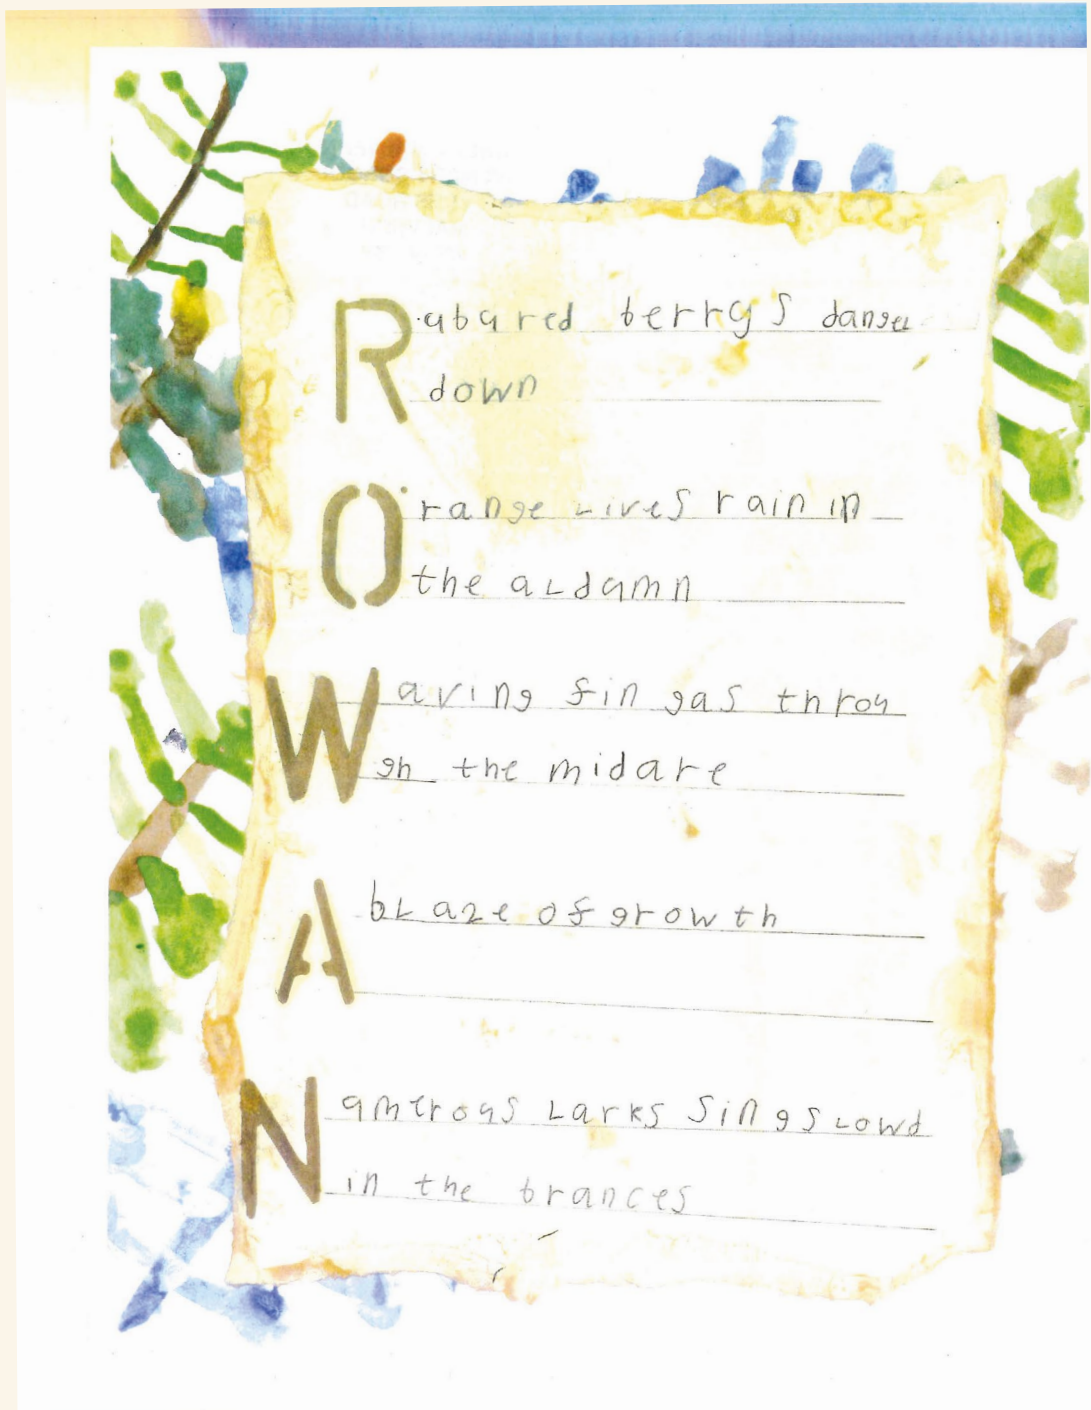 Rubyred berrys danger
down
Orange lives rain in
the aldumn
Waving fingas throu
gh the midare
Ablaze of growth
Numerous Larks Sings Lowd
in the brances